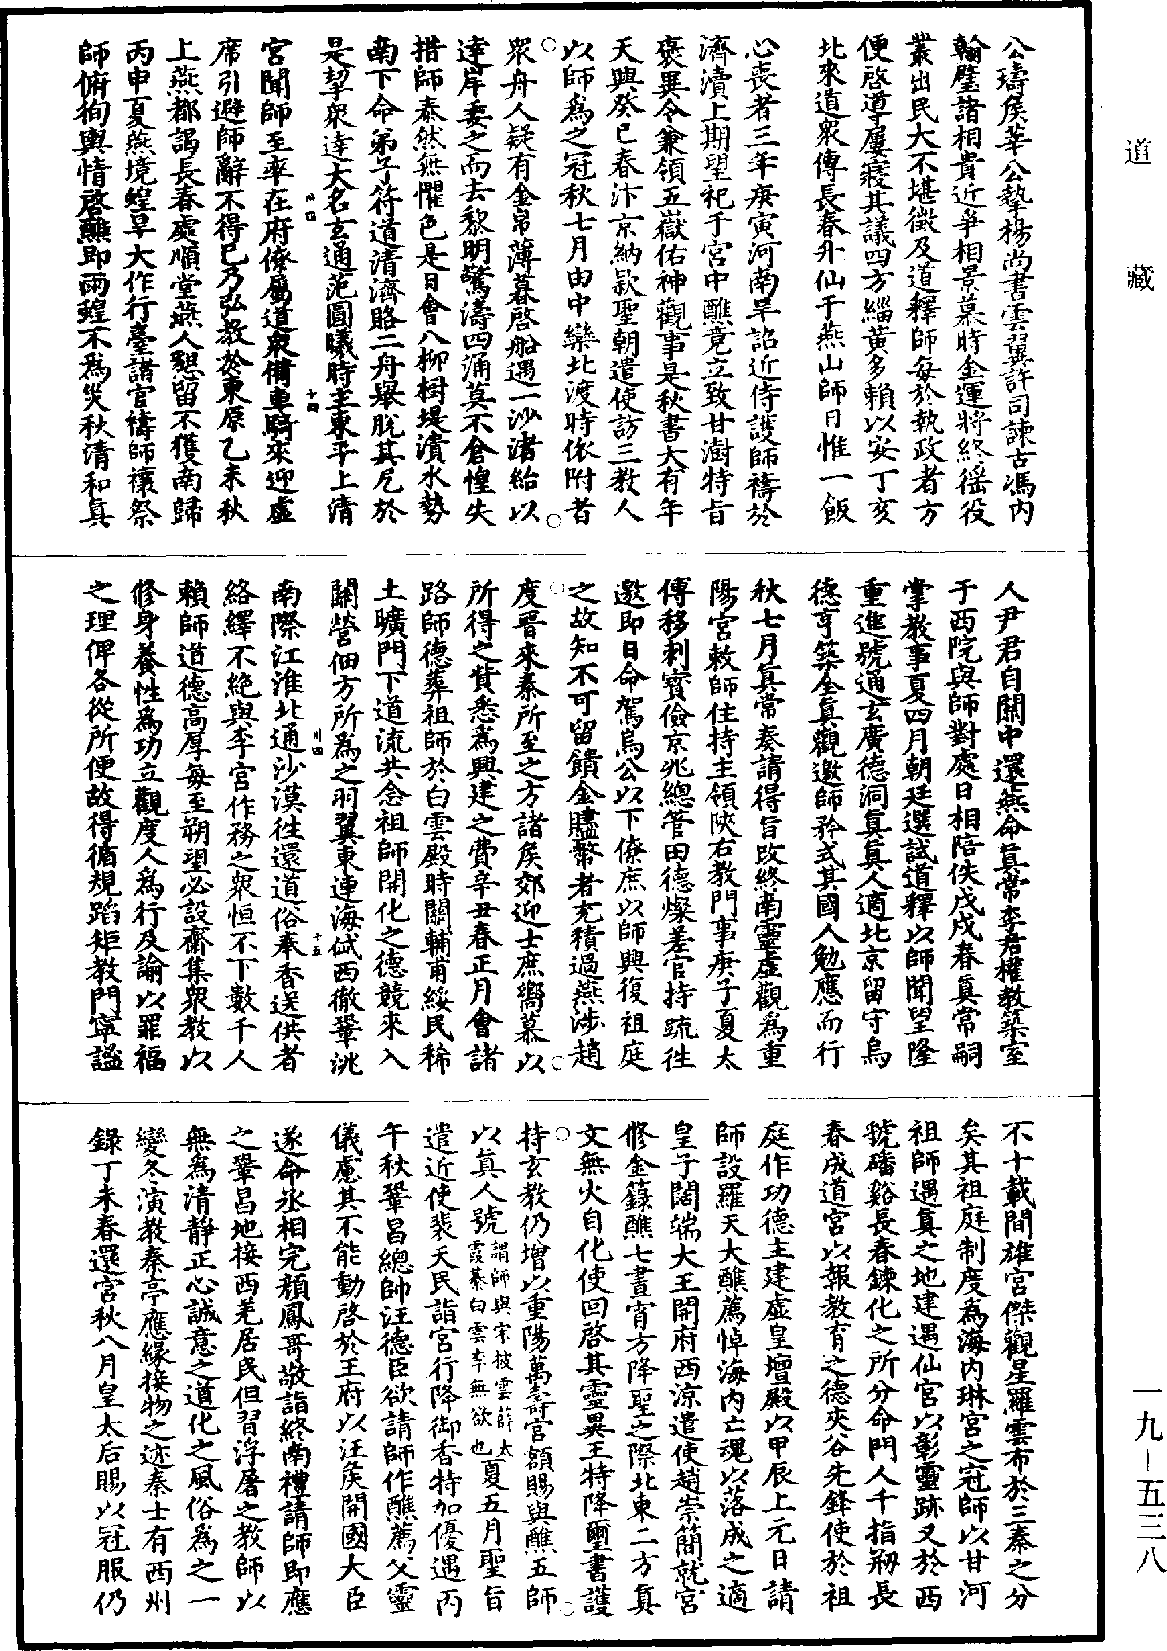 道藏
公璹侯莘公摯楊尚書雲翼許司諫古馮內
翰璧諸相貴近爭相景慕時金運將終徭役
叢出民大不堪徵及道釋師每於執政者方
便啓導屢寢其議四方緇黃多賴以安丁亥
北來道衆傳長春升仙于燕山師日惟一飯
心喪者三年庚寅河南旱詔近侍護師禱於
濟瀆上期望祀于宮中醮竟立致甘澍特旨
褒異令兼領五嶽佑神觀事是秋書大有年
天興癸巳春汴京納款聖朝遣使訪三教人
以師爲之冠秋七月由中欒北渡時依附者
衆舟人疑有金帛薄暮啓船遇一沙渚紿以
達岸委之而去黎明驚濤四涌莫不倉惶失
措師泰然無懼色是日會八柳樹堤潰水勢
南下命弟子符道清濟賂二舟舉脫其戹於
是挈衆達大名玄通范圓曦時主東平上清
宮聞師至率在府僚屬道衆備車騎來迎虛
席引避師辭不得已乃弘教於東原乙未秋
上燕都謁長春處順堂燕人懇留不獲南歸
丙申夏燕境蝗旱大作行臺諸官禱師禳祭
師俯徇輿情啓醮即雨蝗不爲災秋清和真
人尹君自關中還燕命真常李君權教築室
于西院與師對處日相陪佚戊戌春真常嗣
掌教事夏四月朝廷選試道釋以師聞望隆
重進號通玄廣德洞真真人適北京留守烏
德亨築全真觀邀師矜式其國人勉應而行
秋七月真常奏請得旨改終南靈虛觀爲重
陽宮敕師住持主領陝右教門事庚子夏太
傅移剌寶儉京兆總管田德燦差官持疏徃
邀即日命駕烏公以下僚庶以師興復祖庭
之故知不可留饋金贐幣者充積過燕涉趙
度晉來秦所至之方諸侯郊迎士庶嚮慕以
所得之貲悉爲興建之費辛丑春正月會諸
路師德葬祖師於白雲殿時關輔甫綏民稀
土曠門下道流共念祖師開化之德競來入
關營佃方所爲之羽翼東連海岱西徹鞏洮
南際江淮北通沙漠徃還道俗奉香送供者
絡繹不絕與李宮作務之衆恒不下數千人
賴師道德高厚每至朔望必設齋集衆教以
修身養性爲功立觀度人爲行及諭以罪福
之理俾各從所便故得循規蹈矩教門寧謐
不十載間雄宮傑觀星羅雲布於三秦之分
矣其祖庭制度爲海內琳宮之冠師以甘河
祖師遇真之地建遇仙宮以彰靈跡又於西
虢磻谿長春鍊化之所分命門人千指剏長
春成道宮以報教育之德夾谷先鋒使於祖
庭作功德主建虛皇壇殿以甲辰上元日請
師設羅天大醮薦悼海內亡魂以落成之適
皇子闊端大王開府西涼遣使趙崇簡就宮
修金籙醮七晝宵方降聖之際北東二方真
文無火自化使回啓其靈異王特降璽書護
持玄教仍增以重陽萬壽宮額賜與醮五師
以真人號謂師與宋披雲薛太霞綦白雲李無欲也夏五月聖旨
遣近使裴天民詣宮行降御香特加優遇丙
午秋鞏昌總帥汪德臣欲請師作醮薦父靈
儀慮其不能動啓於王府以汪侯開國大臣
遂命丞相完顏鳳哥敬詣終南禮請師即應
之鞏昌地接西羌居民但習浮屠之教師以
無爲清靜正心誠意之道化之風俗爲之一
變冬演教秦亭應緣接物之迹秦士有西州
錄丁未春還宮秋八月皇太后賜以冠服仍
一九—五三八